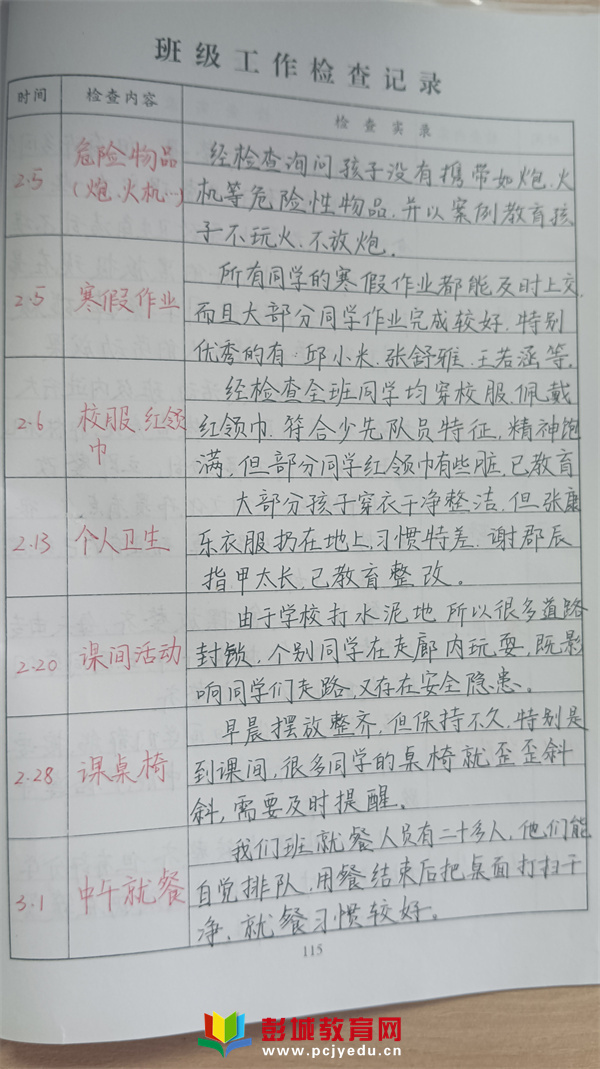 班级工作检查记录
时间 检查内容 检查实录
2.5 危险物品
(炮、火机…)
经检查询问孩子没有携带如炮、火
机等危险性物品,并以案例教育孩
子不玩火、不放炮.
2.5 寒假作业
所有同学的寒假作业都能及时上交,
而且大部分同学作业完成较好,特别
优秀的有:邱小米、张舒雅、王若涵等,
2.6 校服、红领
巾
经检查全班同学均穿校服、佩戴
红领巾.符合少先队员特征,精神饱
满,但部分同学红领巾有些脏,已教育
2.13 个人卫生
大部分孩子穿衣干净整洁,但张康
乐衣服扔在地上,习惯特差.谢郡辰
指甲太长,已教育整改。
2.20 课间活动
由于学校打水泥地,所以很多道路
封锁,个别同学在走廊内玩耍,既影
响同学们走路,又存在安全隐患。
2.28 课桌椅
早晨摆放整齐,但保持不久,特别是
到课间,很多同学的桌椅就歪歪斜
斜,需要及时提醒。
3.1 中午就餐
我们班就餐人员有二十多人,他们能
自觉排队,用餐结束后把桌面打扫干
净,就餐习惯较好。
115
彭城教育网
www.pcjyedu.cn